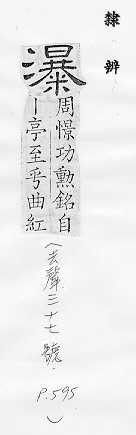 隸辨
瀑
周憬功勲銘自
丨亭至乎曲紅
(去聲三十七號.
P.595
)